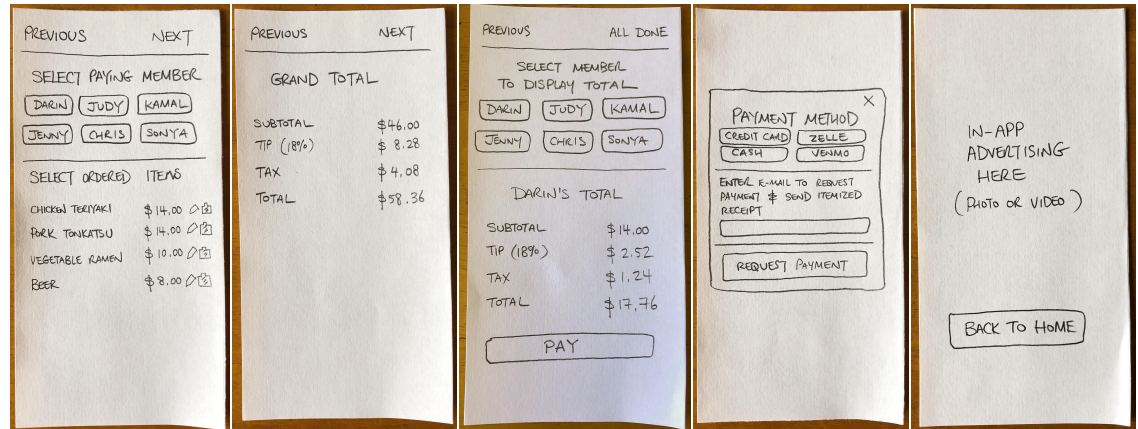 PREVIOUS NEXT
SELECT PAYING MEMBER
DARIN JUDY KAMAL
JENNY CHRIS SONYA
SELECT ORDERED ITEMS
CHICKEN TERIYAKI $14.00
PORK TONKATSU $14.00
VEGETABLE RAMEN $10.00
BEER $8.00
PREVIOUS NEXT
GRAND TOTAL
SUBTOTAL $46.00
TIP (18%) $8.28
TAX $4.08
TOTAL $58.36
PREVIOUS ALL DONE
SELECT MEMBER
TO DISPLAY TOTAL
DARIN JUDY KAMAL
JENNY CHRIS SONYA
DARIN'S TOTAL
SUBTOTAL $14.00
TIP (18%) $2.52
TAX $1.24
TOTAL $17.76
PAY
X
PAYMENT METHOD
CREDIT CARD ZELLE
CASH VENMO
ENTER E-MAIL TO REQUEST
PAYMENT & SEND ITEMIZED
RECEIPT
REQUEST PAYMENT
IN-APP
ADVERTISING
HERE
(PHOTO OR VIDEO)
BACK TO HOME